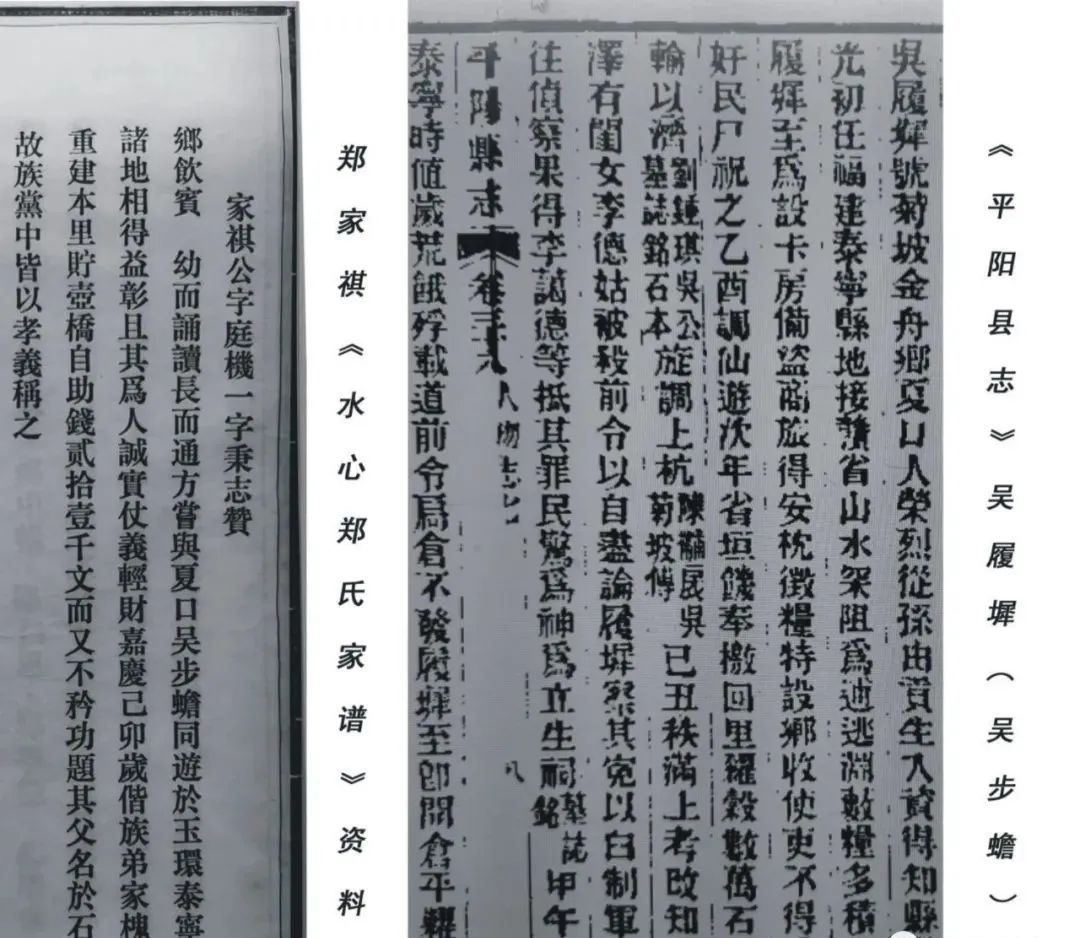 《平阳县志》吴履墀（吴步蟾）
吳履墀號菊坡金舟鄉夏口人榮烈從孫由貢生入資得知縣
光初任福建泰寧縣地接贛省山水深阻爲逋逃淵藪糧多積
履墀至爲設卡房備盜商旅得安枕徵糧特設鄉收使吏不得
奸民尸祝之乙酉調仙遊次年省垣饑奉檄回里糴穀數萬石
輸以濟劉鍾琪吳公墓誌銘石本旋調上杭陳黼民吳菊坡傳己丑秩滿上考改知
澤有閨女李德姑被殺前令以自盡論履墀察其冤以白制軍
往偵察果得李萬德等抵其罪民驚爲神爲立生祠墓誌銘甲午
平陽縣志 卷三十 人物志 八
泰寧時值歲荒餓殍載道前令扃倉不發履墀至即開倉平糶
郑家祺《水心郑氏家谱》资料
家祺公字庭機一字秉志贊
鄉飲賓 幼而誦讀長而通方嘗與夏口吴步蟾同遊於玉環泰寧
諸地相得益彰且其爲人誠實仗義輕財嘉慶己卯歲偕族弟家槐
重建本里貯壺橋自助錢貳拾壹千文而又不矜功題其父名於石
故族黨中皆以孝義稱之